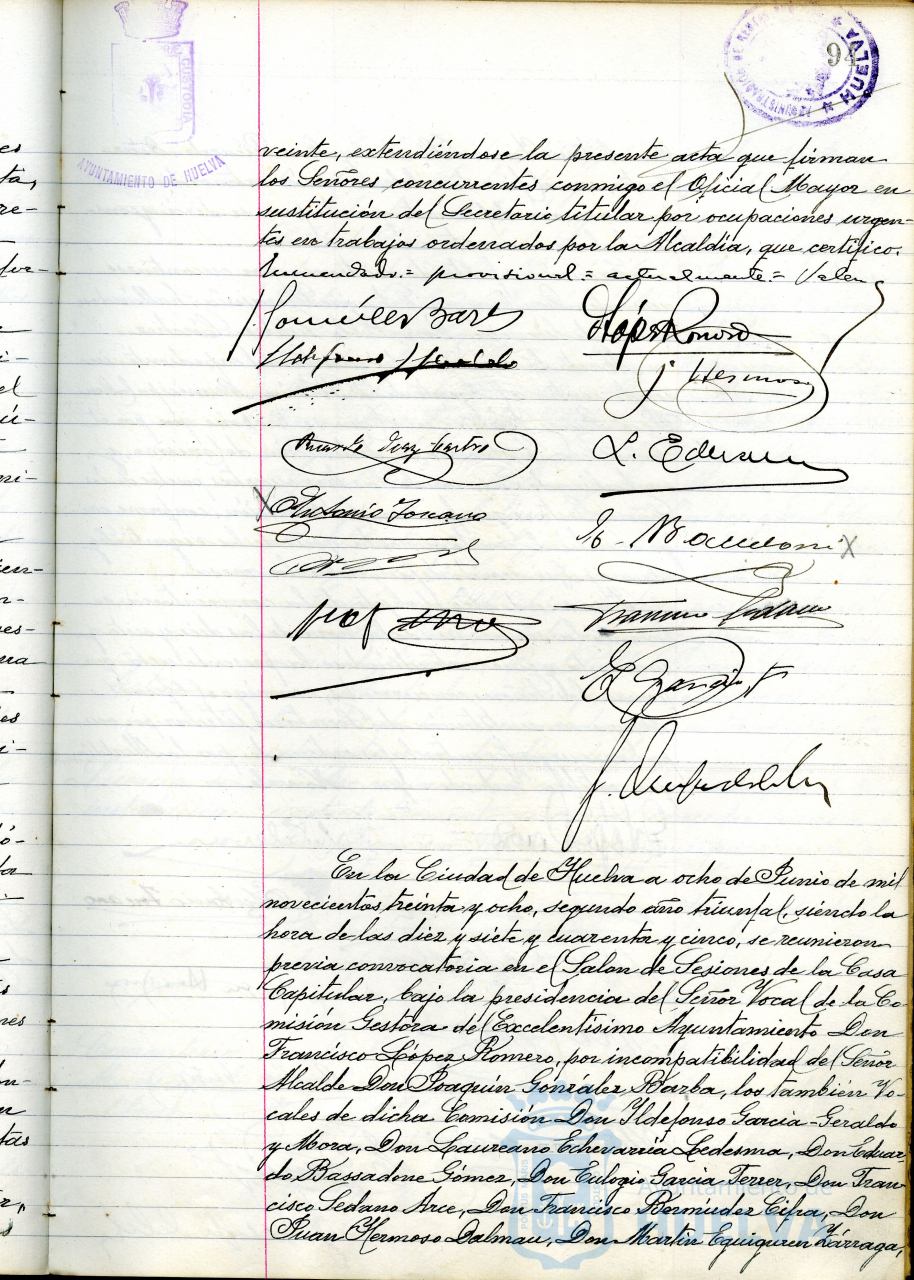 94
CUSTODIA
AYUNTAMIENTO DE HUELVA
HUELVA
veinte, extendiéndose la presente acta que firman
los Señores concurrentes conmigo el Oficial Mayor en
sustitución del Secretario titular por ocupaciones urgen-
tes en trabajos ordenados por la Alcaldía, que certifico.
Enmendado = provisional = actualmente = Valen
J. González Barba
F López Romero
J. Hermoso
Ricardo Diaz Castro
L. Echevarria
Antonio Toscano
E. Bassadone
Francisco Sedano
E. Garcia F
En la Ciudad de Huelva a ocho de Junio de mil
novecientos treinta y ocho, segundo año triunfal, siendo la
hora de las diez y siete y cuarenta y cinco, se reunieron
previa convocatoria en el Salon de Sesiones de la Casa
Capitular, bajo la presidencia del Señor Vocal de la Co-
misión Gestora del Excelentísimo Ayuntamiento Don
Francisco López Romero, por incompatibilidad del Señor
Alcalde Don Joaquín González Barba, los también Vo-
cales de dicha Comisión Don Ildefonso Garcia-Geraldo
y Mora, Don Laureano Echevarría Ledesma, Don Eduar
do Bassadone Gómez, Don Eulogio Garcia Ferrer, Don Fran
cisco Sedano Arce, Don Francisco Bermudez Cifra, Don
Juan Hermoso Dalmau, Don Martín Equiguren Zárraga,
Ayuntamiento de
HUELVA